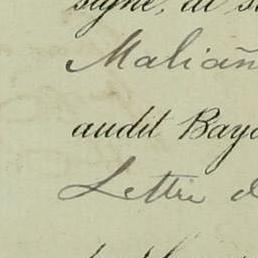 signé, de s
Maliañ
audit Bayo
Lettre d